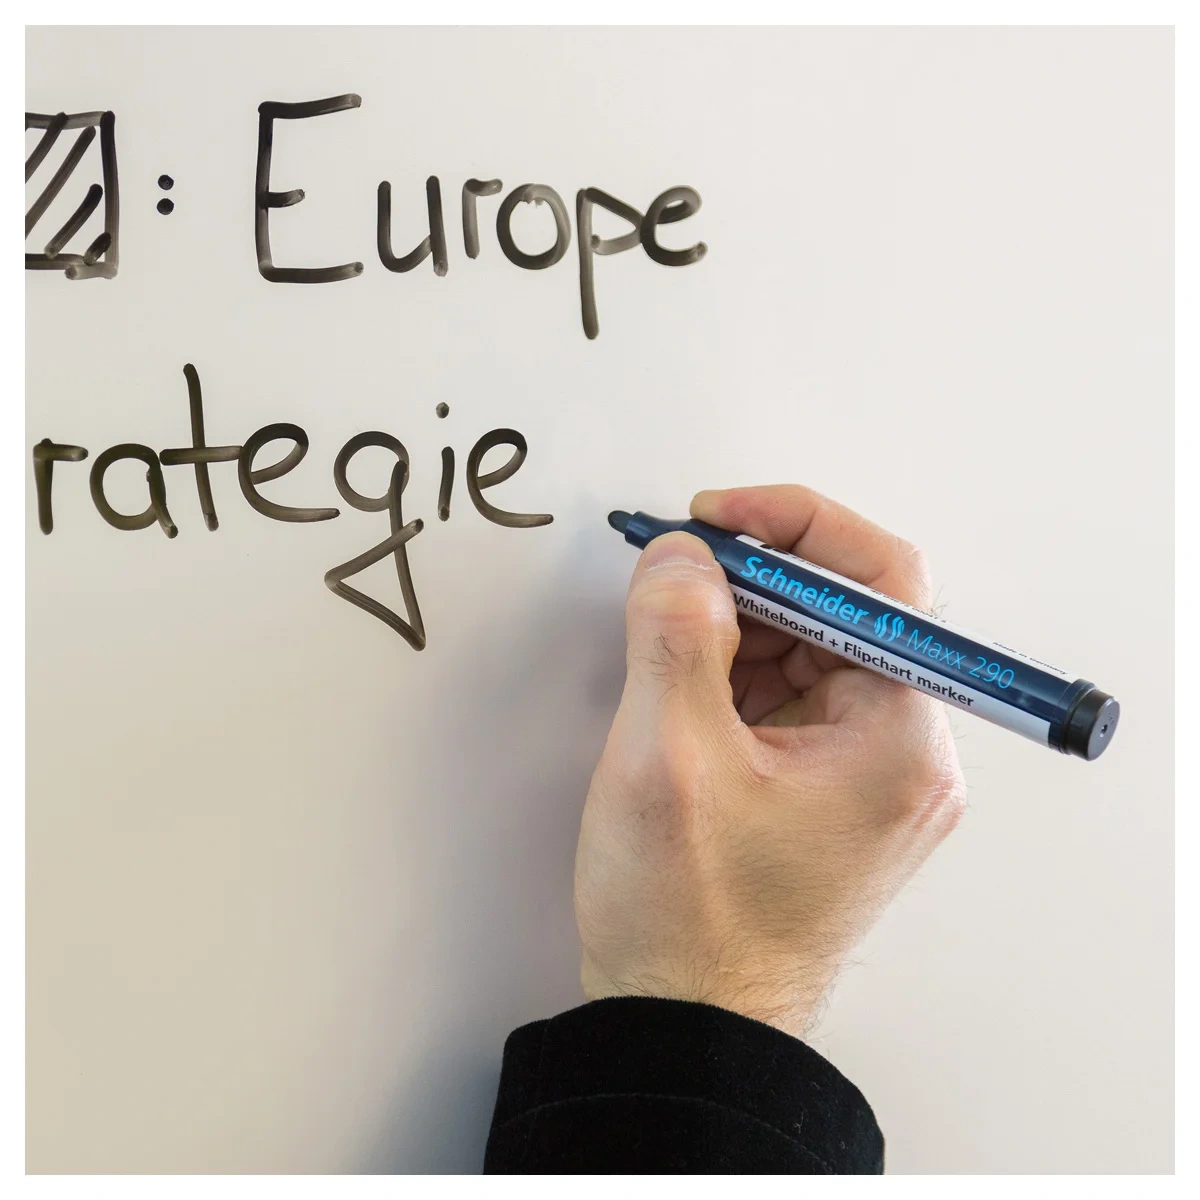 : Europe
rategie
Schneider Maxx 290
Whiteboard + Flipchart marker